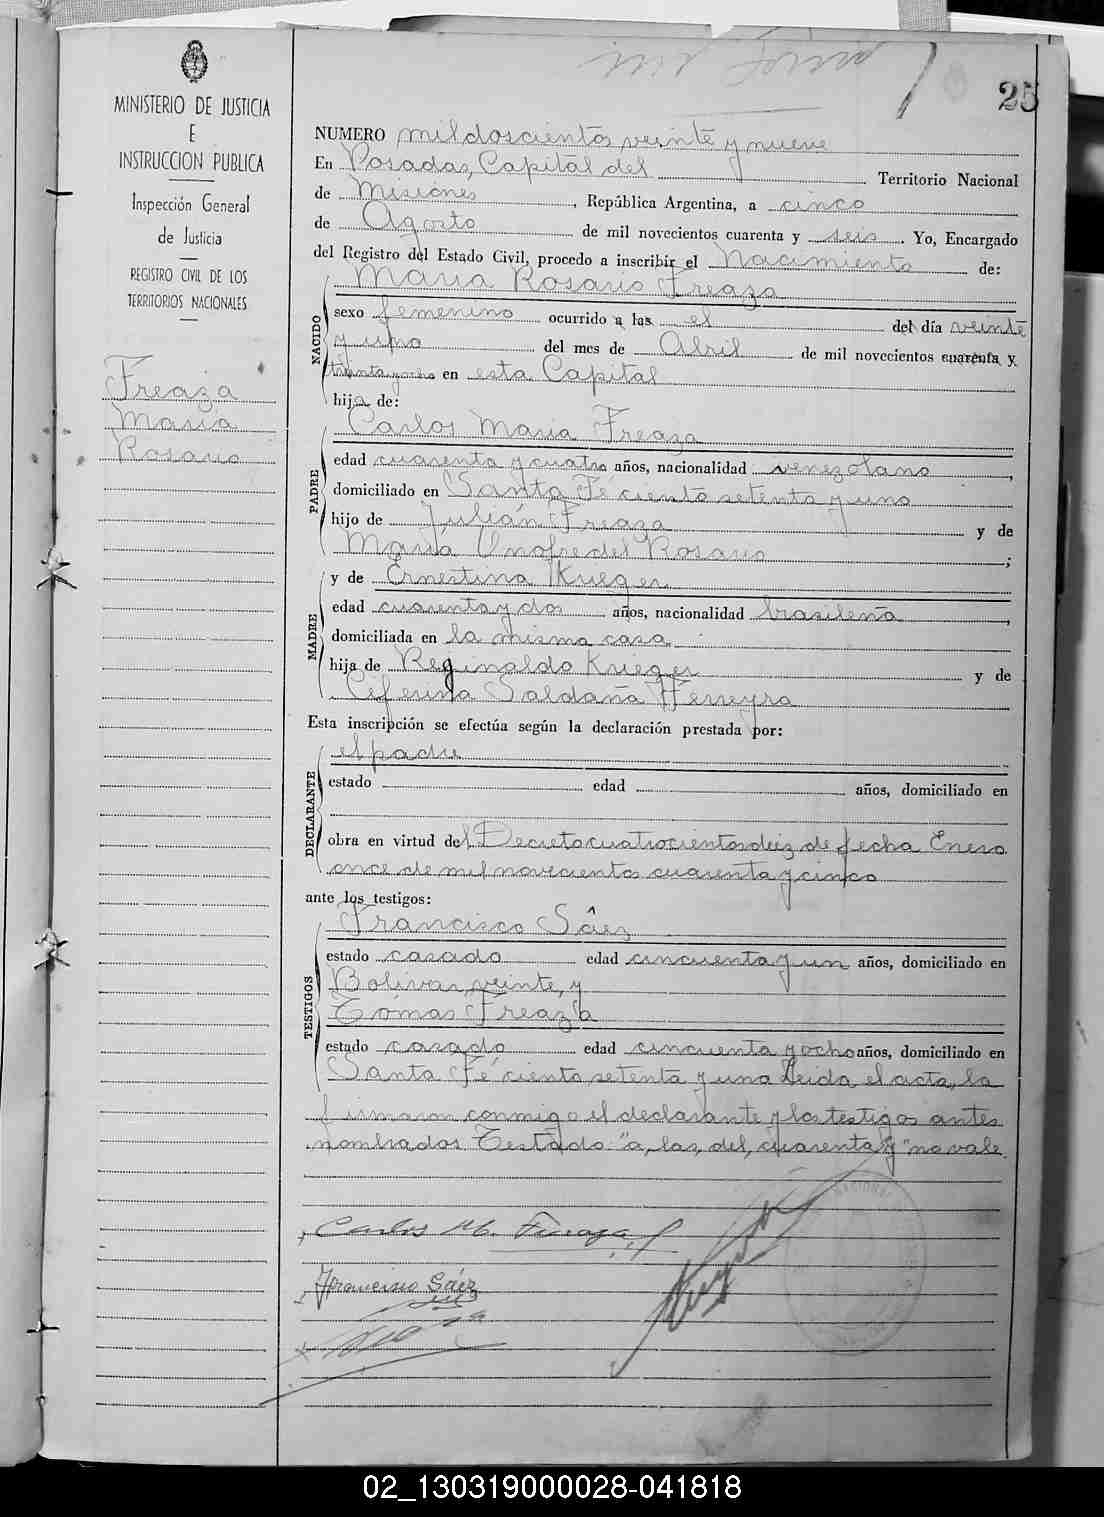 25
MINISTERIO DE JUSTICIA
E
INSTRUCCION PUBLICA
Inspección General
de Justicia
REGISTRO CIVIL DE LOS
TERRITORIOS NACIONALES
Freaza
Maria
Rosario
NUMERO mil doscientos veinte y nueve
En Posadas, Capital del Territorio Nacional
de Misiones, República Argentina, a cinco
de Agosto de mil novecientos cuarenta y seis. Yo, Encargado
del Registro del Estado Civil, procedo a inscribir el Nacimiento de:
NACIDO
Maria Rosario Freaza
sexo femenino ocurrido a las el del día veinte
y uno del mes de Abril de mil novecientos cuarenta y
treinta y en esta Capital
hija de:
PADRE
Carlos Maria Freaza
edad cuarenta y cuatro años, nacionalidad venezolano,
domiciliado en Santa Fé ciento setenta y uno
hijo de Julián Freaza y de
María Onofre del Rosario;
MADRE
y de Ernestina Krieger
edad cuarenta y dos años, nacionalidad brasileña,
domiciliada en la misma casa
hija de Reginaldo Krieger y de
Ceferina Saldaña Herreyra
Esta inscripción se efectúa según la declaración prestada por:
DECLARANTE
el padre
estado edad años, domiciliado en
obra en virtud del Decreto cuatrocientos diez de fecha Enero
once de mil novecientos cuarenta y cinco
ante los testigos:
TESTIGOS
Francisco Sáez
estado casado edad cincuenta y un años, domiciliado en
Bolivar veinte, y
Tomas Freaza
estado casado edad cincuenta y ocho años, domiciliado en
Santa Fé ciento setenta y uno Leida el acta, la
firmaron conmigo el declarante y los testigos antes
nombrados Testado "a, las, del, cuarenta y" no vale.
Carlos M. Freaza
Francisco Sáez
Freaza
02_130319000028-041818